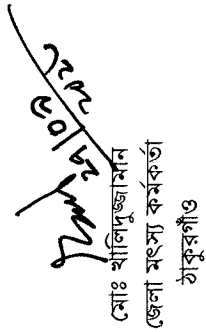 মোঃ খালিদুজ্জামান
জেলা মৎস্য কর্মকর্তা
ঠাকুরগাঁও